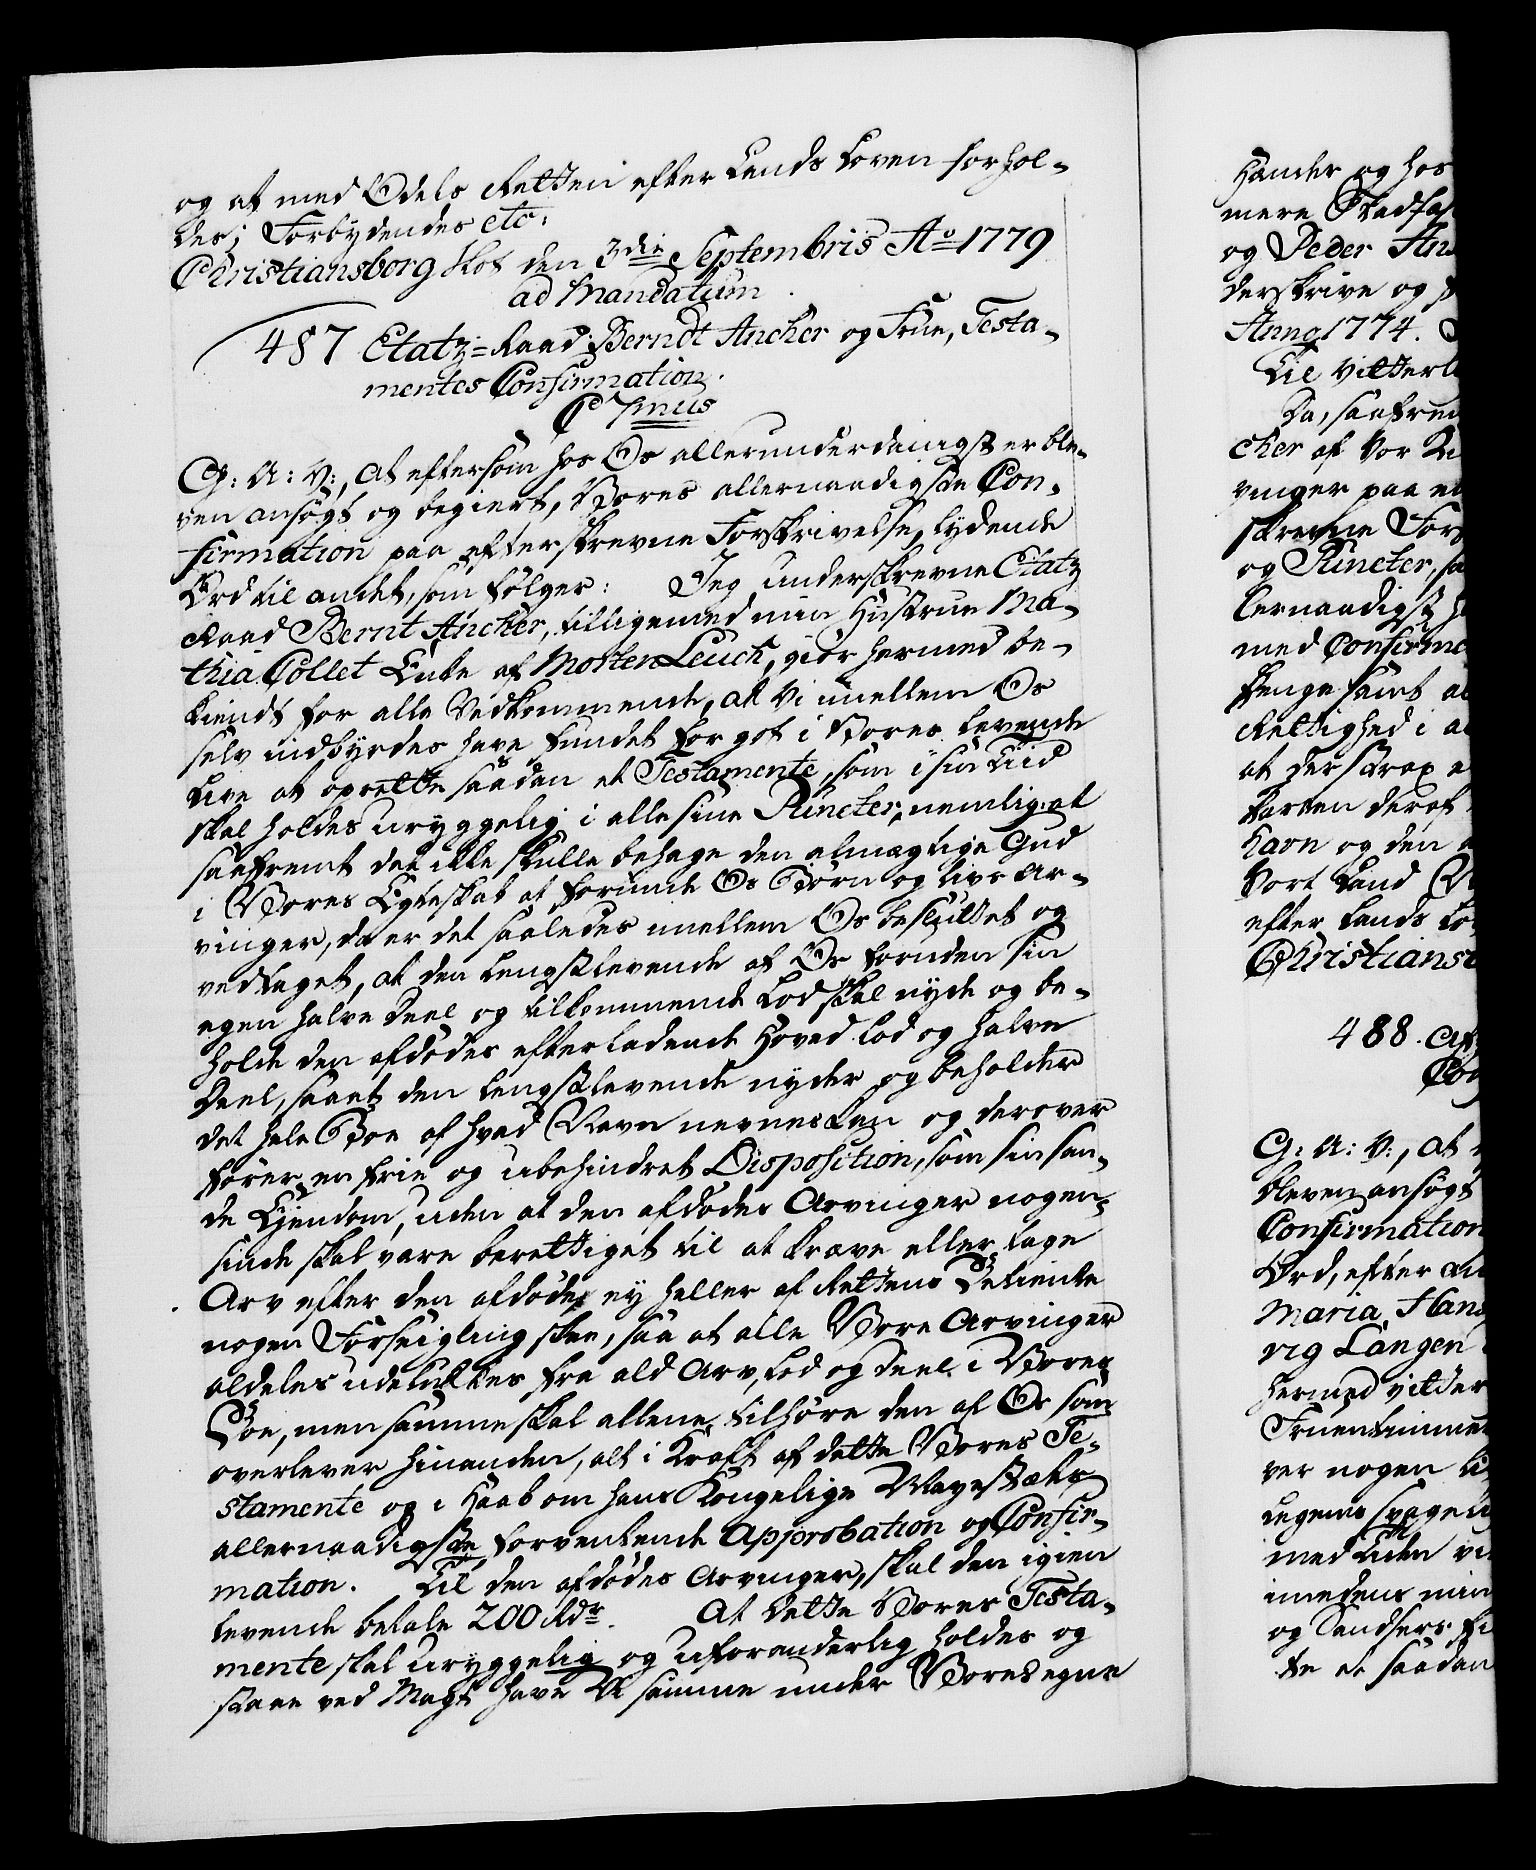 og at med Odels Retten efter Lands Loven forhol-
des; Forbydendes etc:
Christiansborg Slot den 3die Septembris Ao 1779
ad Mandatum
487 Etatz-Raad Berndt Ancher og Frue, Testa-
mentes Confirmation.
C 7mus
G: A: V:, at eftersom hos Os allerunderdanigst er ble-
ven ansøgt og begiert, Vores allernaadigste Con-
firmation paa efterskrevne Forskrivelse, lydende
Ord til andet, som følger: Jeg underskrevne Etatz
Raad Bernt Ancher, tilligemed min Hustrue Ma-
thia Collet Enke af Morten Leuch, giør hermed be-
kiendt for alle Vedkommende, at Vi imellem Os
selv indbyrdes have fundet for got i Vores levende
Live at oprette saadan et Testamente, som i sin Tiid
skal holdes uryggelig i alle sine Puncter, nemlig: at
saafremt det ikke skulle behage den almægtige Gud
i Vores Egteskab at forunde Os Børn og Livs Ar-
vinger, da er det saaledes imellem Os besluttet og
vedtaget, at den lengstlevende af Os foruden sin
egen halve Deel og tilkommende Lod skal nyde og be-
holde den afdødes efterladende Hoved Lod og halve
Deel, saa at den lengstlevende nyder og beholder
det hele Boe af hvad Navn nevnes kan og derover
fører en frie og ubehindret Disposition, som sin san-
de Ejendom, uden at den afdødes Arvinger nogen-
sinde skal være berettiget til at kræve eller tage
Arv efter den afdøde, ey heller af Rettens Betiente
nogen Forseigling skee, saa at alle Vore Arvinger
aldeles udelukkes fra ald Arv, Lod og Deel i Vores
Boe, men samme skal allene tilhøre den af Os som
overlever hinanden, alt i Kraft af dette Vores Te-
stamente og i Haab om hans Kongelige Mayestæts
allernaadigste forventende Approbation og Confir-
mation. Til den afdødes Arvinger, skal den igien
levende betale 200 Rdr. At dette Vores Testa-
mente skal uryggelig og uforanderlig holdes og
staae ved Magt have Vi samme under Vores egne
Hænder og hos
mere Stadfæ
og Peder An
derskrive og
Anno 1774.
Til Vitterl
Da, saafrem
cher af Vor
vinger paa
skrevne For
og Puncter, sa
lernaadigst h
med Confirma
henge samt al
Rettighed i a
at der strax
Parten deraf
havn og den
Vort Land N
efter Lands Lo
Christians
488.
G: A: V:, at
bleven ansøgt
Confirmation
Ord, efter an
Maria Hans
vig Langen
hermed vitter
Fruentimmer
ver nogen
legems svage
med Tiden
imedens min
og Sandsers
te at saadan